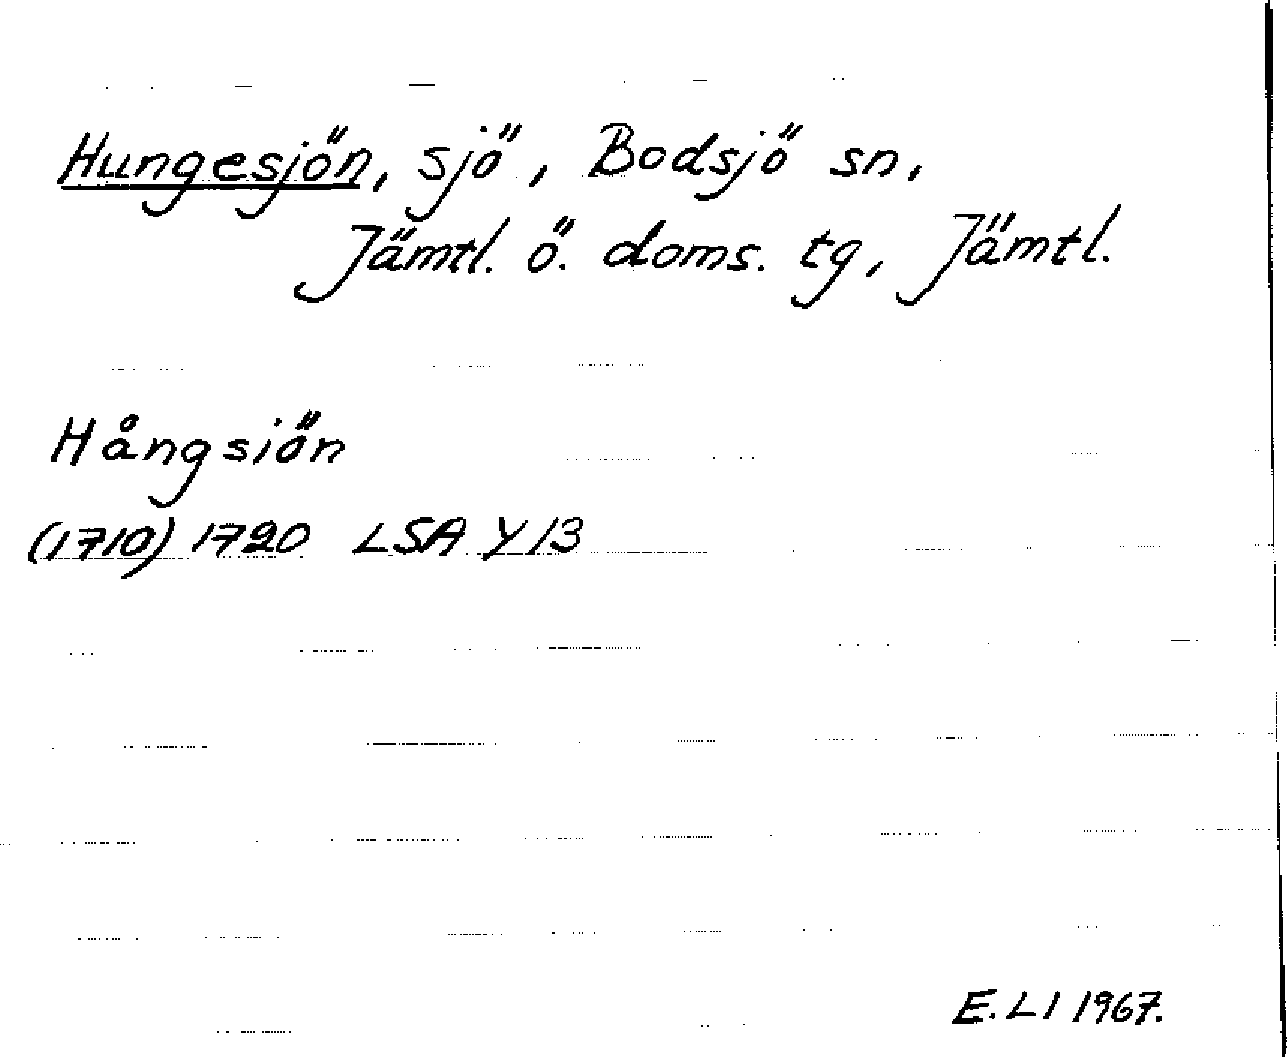 Hungesjön, sjö, Bodsjö sn,
Jämtl. ö. doms. tg, Jämtl.
Hångsiön
(1710) 1720 LSA Y 13
E. LI 1967.